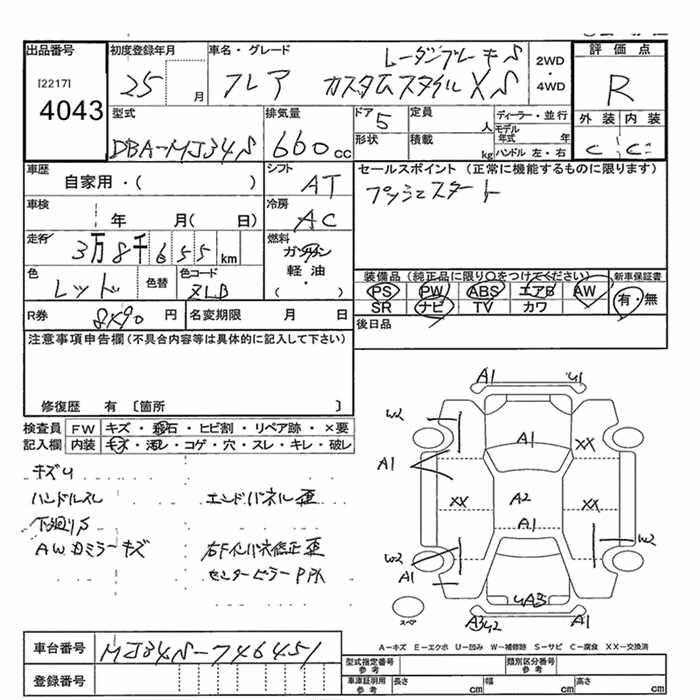 出品番号
[2217]
4043
初度登録年月
25 月
車名・グレード
レーダーブレーキS
フレア カスタムスタイル XS
2WD
・
4WD
評価点
R
外装 内装
C C
型式
DBA-MJ34S
排気量
660 CC
ドア 5
形状
定員 人
積載 kg
ディーラー・並行
モデル年式 年
ハンドル 左・右
車歴
自家用・( )
シフト
AT
セールスポイント(正常に機能するものに限ります)
プッシュスタート
車検
年 月( 日)
冷房
AC
走行
3万8千655km
燃料
ガソリン
軽油
・
( )
色
レッド
色替
色コード
ZLB
装備品(純正品に限り○をつけてください)
PS PW ABS エアB AW
SR ナビ TV カワ
新車保証書
有・無
R券 8490 円
名変期限 月 日
後日品
注意事項申告欄(不具合内容等は具体的に記入して下さい)
修復歴 有〔箇所 〕
検査員 FW キズ・飛石・ヒビ割・リペア跡・×要
記入欄 内装 キズ・汚レ・コゲ・穴・スレ・キレ・破レ
キズU
ハンドルスレ
エンドパネル歪
下廻りS
AW ドミラーキズ
右Fインパネ修正歪
センターピラー
A1
U1
W2
A1
A1
XX
XX
A2
XX
A1
W2
A1
W2
UA3
A3U2
A1
スペア
A-キズ E-エクボ U-凹み W-補修跡 S-サビ C-腐食 XX-交換済
車台番号 MJ34S-746451
登録番号
型式指定番号 参考
類別区分番号 参考
車庫証明用 参考
長さ cm
幅 cm
高さ cm